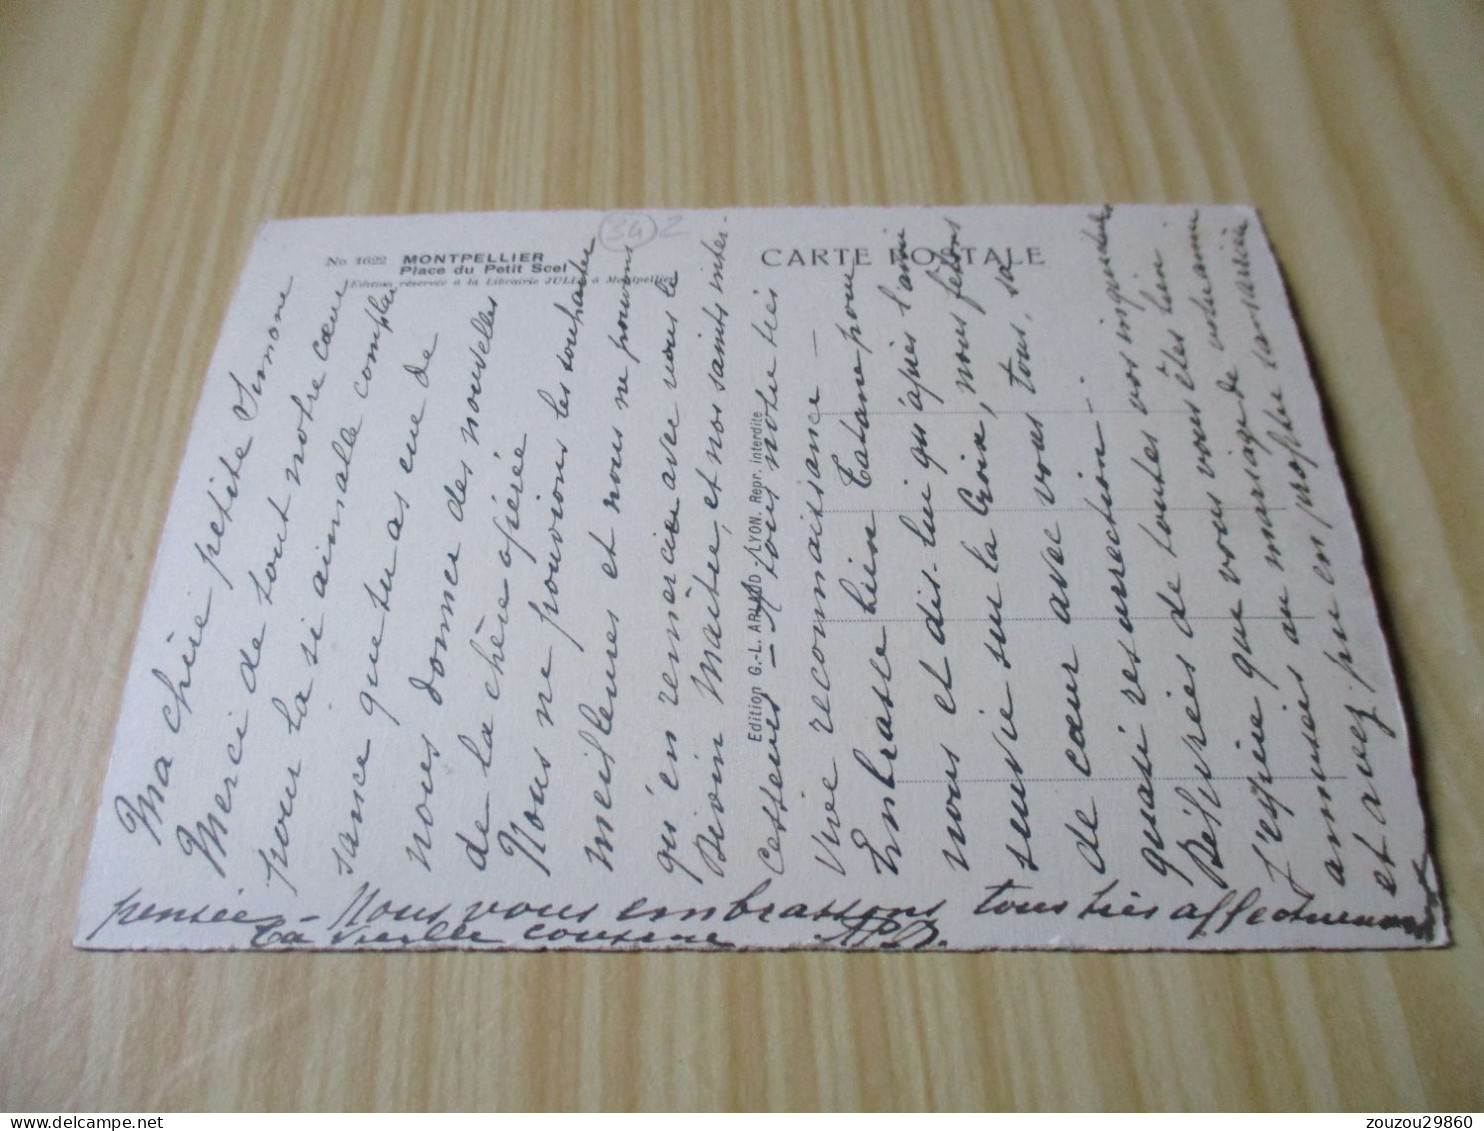 No 1622 MONTPELLIER
Place du Petit Scel
Edition réservée à la Librairie à Montpellier
34 2
CARTE POSTALE
Edition G.-L. ARLAUD - LYON. Repr. interdite
Ma chère petite Simone
Merci de tout notre cœur
pour ta si aimable complai
sance que tu as eue de
nous donner des nouvelles
de la chère opérée
Nous ne pouvions les souhaiter
meilleures et nous ne pouvons
qu'en remercier avec vous le
Divin Maître, et nos saints inter-
cesseurs - A tous notre très
vive reconnaissance -
Embrasse bien Tatane pour
nous et dis-lui qu'après l'avoir
suivie sur la Croix, nous fêtons
de cœur avec vous tous, sa
quasi resurrection -
Délivrées de toutes vos inquiétudes
J'espère que vous vous êtes bien
amusées au mariage de
et avez pu en profiter
pensée - Nous vous embrassons tous très affectueusement
Ta vieille cousine
zouzou29860